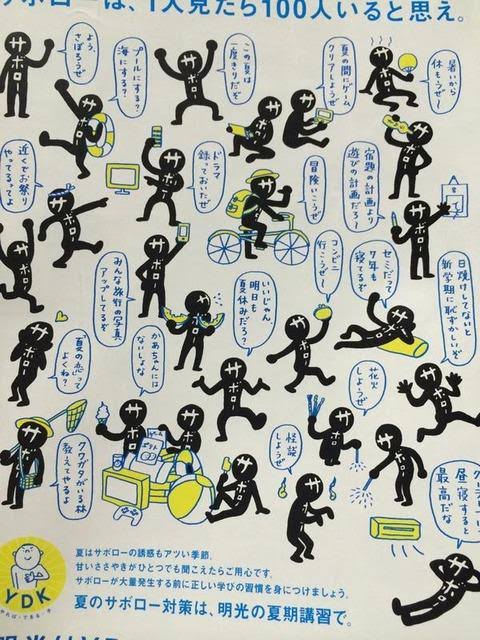 サボローは、1人見たら100人いると思え。
よう、
さぼろうぜ
プールにする？
海にする？
この夏は
一度きりだぞ
夏の間にゲーム
クリアしようぜ
暑いから
休もうぜ〜
近くでお祭り
やってるってよ
ドラマ
録っておいたぜ
冒険いこうぜ
宿題の計画より
遊びの計画だろ？
みんな旅行の写真
アップしてるぞ
いいじゃん、
明日も
夏休みだろ？
コンビニ
行こうぜ〜
セミだって
7年も
寝てるぞ
日焼けしてないと
新学期に恥ずかしいぞ
「夏の恋」って
よくね？
かあちゃんには
ないしょな
花火
しようぜ
怪談
しようぜ
クワガタがいる林
教えてやるよ
昼寝すると
最高だな
サボロー
YDK
夏はサボローの誘惑もアツい季節。
甘いささやきがひとつでも聞こえたらご用心です。
サボローが大量発生する前に正しい学びの習慣を身につけましょう。
夏のサボロー対策は、明光の夏期講習で。